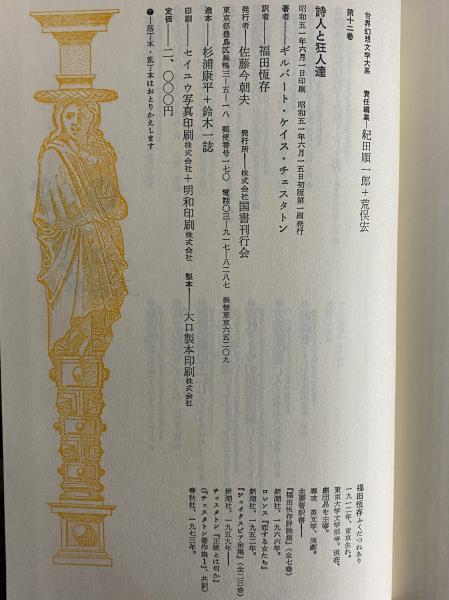 世界幻想文学大系　責任編集──紀田順一郎＋荒俣宏
第十二巻
詩人と狂人達
昭和五一年六月一日印刷　昭和五一年六月一五日初版第一刷発行
著者──ギルバート・ケイス・チェスタトン
訳者──福田恆存
発行者──佐藤今朝夫　発行所──株式会社国書刊行会
東京都豊島区巣鴨三−五−一八　郵便番号一七〇　電話〇三−九一七−八二八七　振替東京六五二〇九
造本──杉浦康平＋鈴木一誌
印刷──セイユウ写真印刷株式会社＋明和印刷株式会社　製本──大口製本印刷株式会社
定価──二、〇〇〇円
●──落丁本・乱丁本はおとりかえします
福田恆存ふくだつねあり
一九一二年、東京生れ。
東京大学文学部卒。現在、
劇団昴を主宰。
専攻　英文学、演劇。
主要著訳書──
『福田恆存評論集』（全七巻）
新潮社、一九六六年。
ロレンス『恋する女たち』
新潮社、一九五二年。
『シェイクスピア全集』（全一五巻）
新潮社、一九五九年──
チェスタトン『正統とは何か』
（『チェスタトン著作集1』、共訳）
春秋社、一九七三年。